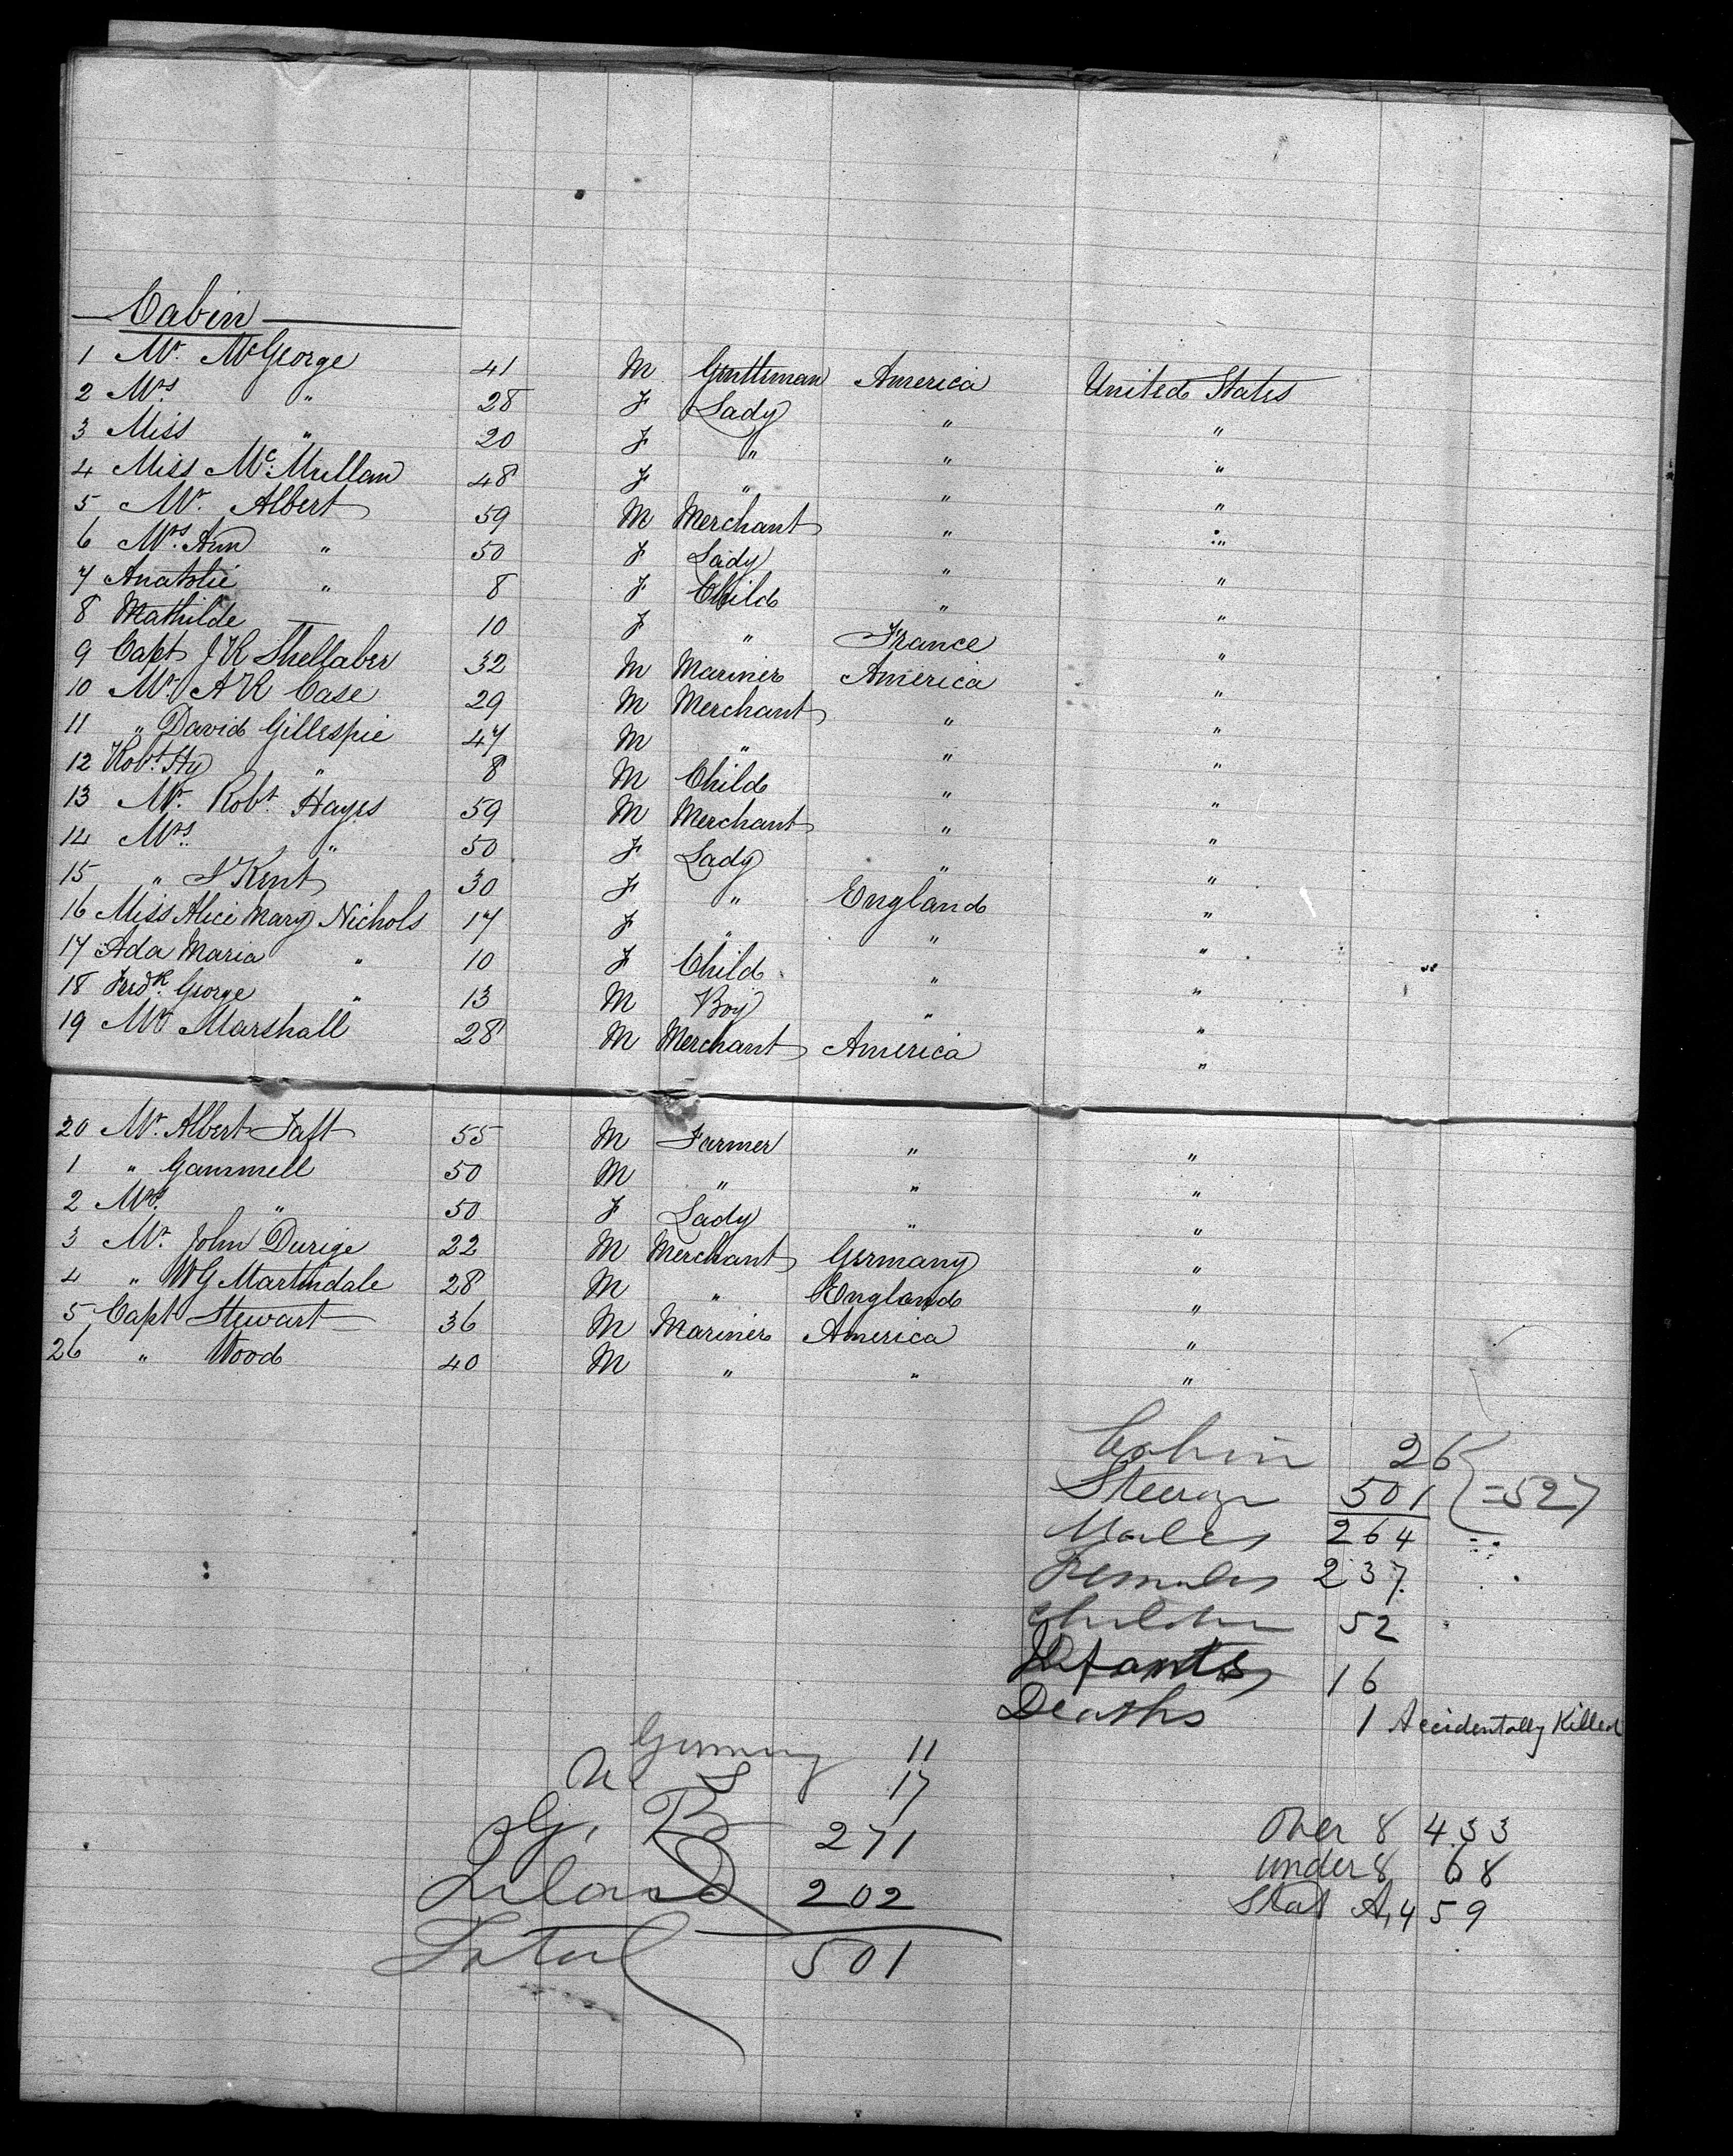 Cabin
1 Mr. McGeorge 41 M Gentleman America United States
2 Mrs " 28 F Lady " "
3 Miss " 20 F " " "
4 Miss McMullan 48 F " " "
5 Mr. Albert 59 M Merchant " "
6 Mrs. Ann " 50 F Lady " "
7 Anatolie " 8 F Child " "
8 Mathilde — 10 F " France "
9 Capt J K Shellaber 32 M Mariner America "
10 Mr A K Case 29 M Merchant " "
11 " David Gillespie 47 M " " "
12 Robt. Hy " 8 M Child " "
13 Mr. Robt. Hayes 59 M Merchant " "
14 Mrs. " 50 F Lady " "
15 " S Kent 30 F " England "
16 Miss Alice Mary Nichols 17 F " " "
17 Ada Maria " 10 F Child " "
18 Fredk. George " 13 M Boy " "
19 Mr Marshall 28 M Merchant America "
20 Mr. Albert Taft 55 M Farmer " "
1 " Gammell 50 M " " "
2 Mrs. " 50 F Lady " "
3 Mr. John Durige 22 M Merchant Germany "
4 " W G Martindale 28 M " England "
5 Capt Stewart 36 M Mariner America "
26 " Wood 40 M " " "
Cabin 26
Steerage 501 } =527
Males 264
Females 237
Children 52
Infants 16
Deaths 1 Accidentally Killed
Germany 11
U. S 17
G. B 271
Ireland 202
Total 501
Over 8 433
under 8 68
Stat A, 459